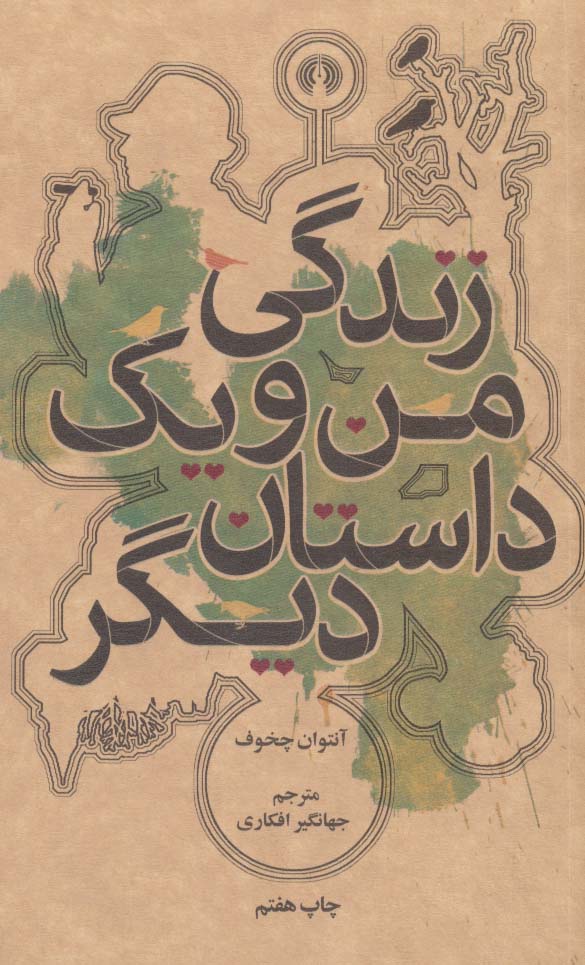 زندگی
من و یک
داستان
دیگر
آنتوان چخوف
مترجم
جهانگیر افکاری
چاپ هفتم